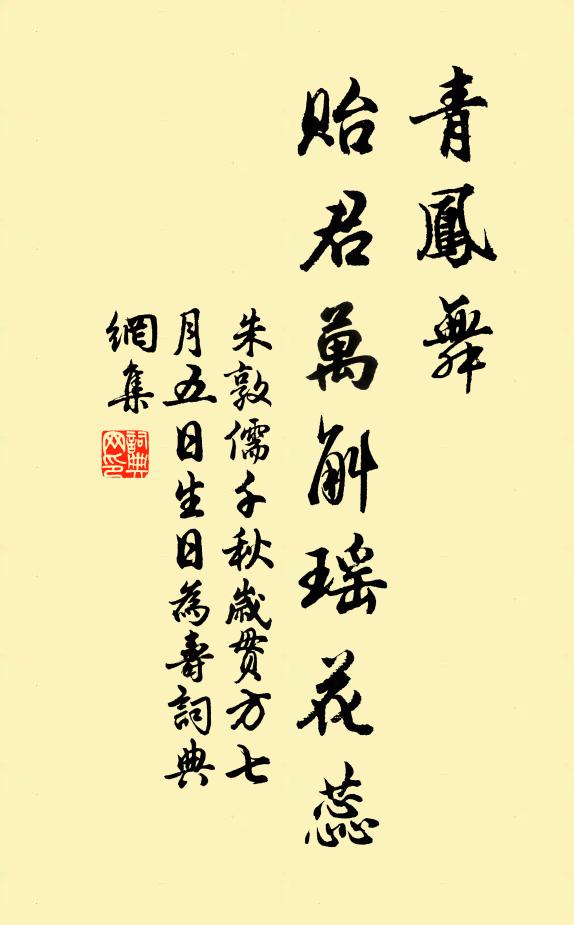 青鳳舞
貽君萬斛瑶花蕊
朱敦儒千秋歲贯方七
月五日生日為壽詞典
網集
詞典
网印